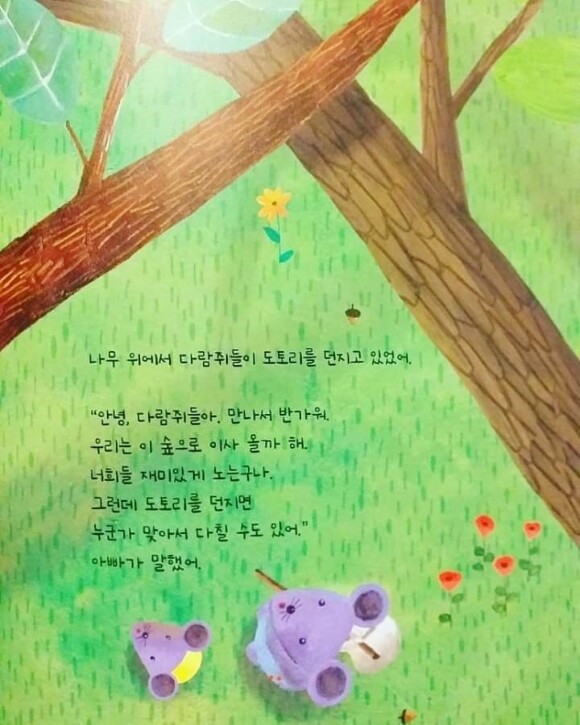 나무 위에서 다람쥐들이 도토리를 던지고 있었어.
“안녕, 다람쥐들아. 만나서 반가워.
우리는 이 숲으로 이사 올까 해.
너희들 재미있게 노는구나.
그런데 도토리를 던지면
누군가 맞아서 다칠 수도 있어.”
아빠가 말했어.